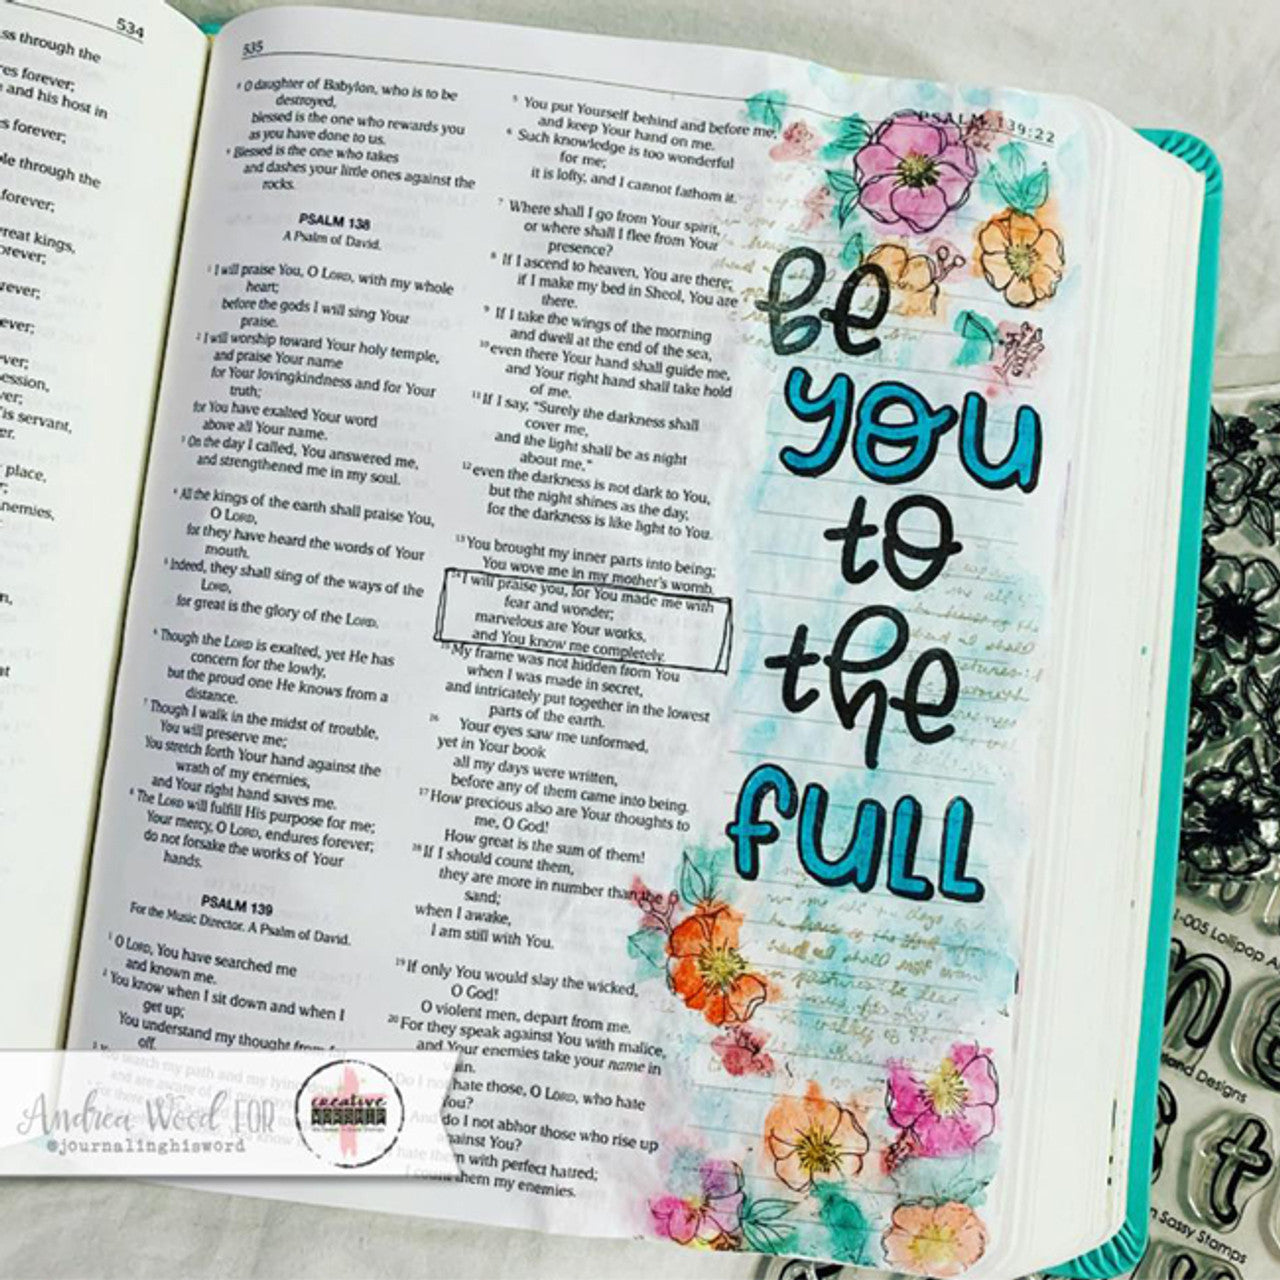 534
ss through the
es forever;
and his host in
s forever;
le through the
forever;
reat kings,
orever;
ever;
ever;
rver;
ession,
ver;
is servant,
er.
place,
nemies,
535
PSALM 139:22
⁸ O daughter of Babylon, who is to be
destroyed,
blessed is the one who rewards you
as you have done to us.
⁹ Blessed is the one who takes
and dashes your little ones against the
rocks.
PSALM 138
A Psalm of David.
¹ I will praise You, O LORD, with my whole
heart;
before the gods I will sing Your
praise.
² I will worship toward Your holy temple,
and praise Your name
for Your lovingkindness and for Your
truth;
for You have exalted Your word
above all Your name.
³ On the day I called, You answered me,
and strengthened me in my soul.
⁴ All the kings of the earth shall praise You,
O LORD,
for they have heard the words of Your
mouth.
⁵ Indeed, they shall sing of the ways of the
LORD,
for great is the glory of the LORD.
⁶ Though the LORD is exalted, yet He has
concern for the lowly,
but the proud one He knows from a
distance.
⁷ Though I walk in the midst of trouble,
You will preserve me;
You stretch forth Your hand against the
wrath of my enemies,
and Your right hand saves me.
⁸ The LORD will fulfill His purpose for me;
Your mercy, O LORD, endures forever;
do not forsake the works of Your
hands.
PSALM 139
For the Music Director. A Psalm of David.
¹ O LORD, You have searched me
and known me.
² You know when I sit down and when I
get up;
You understand my thought from
off.
⁵ You put Yourself behind and before me,
and keep Your hand on me.
⁶ Such knowledge is too wonderful
for me;
it is lofty, and I cannot fathom it.
⁷ Where shall I go from Your spirit,
or where shall I flee from Your
presence?
⁸ If I ascend to heaven, You are there;
if I make my bed in Sheol, You are
there.
⁹ If I take the wings of the morning
and dwell at the end of the sea,
¹⁰ even there Your hand shall guide me,
and Your right hand shall take hold
of me.
¹¹ If I say, "Surely the darkness shall
cover me,
and the light shall be as night
about me,"
¹² even the darkness is not dark to You,
but the night shines as the day,
for the darkness is like light to You.
¹³ You brought my inner parts into being;
You wove me in my mother's womb.
¹⁴ I will praise you, for You made me with
fear and wonder;
marvelous are Your works,
and You know me completely.
¹⁵ My frame was not hidden from You
when I was made in secret,
and intricately put together in the lowest
parts of the earth.
¹⁶ Your eyes saw me unformed,
yet in Your book
all my days were written,
before any of them came into being.
¹⁷ How precious also are Your thoughts to
me, O God!
How great is the sum of them!
¹⁸ If I should count them,
they are more in number than the
sand;
when I awake,
I am still with You.
¹⁹ If only You would slay the wicked,
O God!
O violent men, depart from me.
²⁰ For they speak against You with malice,
and Your enemies take your name in
hate those, O LORD, who hate
You?
do I not abhor those who rise up
against You?
with perfect hatred;
them my enemies.
be
you
to
the
full
Andrea Wood FOR
@journalinghisword
creative
Lollipop
Designs
Sassy Stamps
t